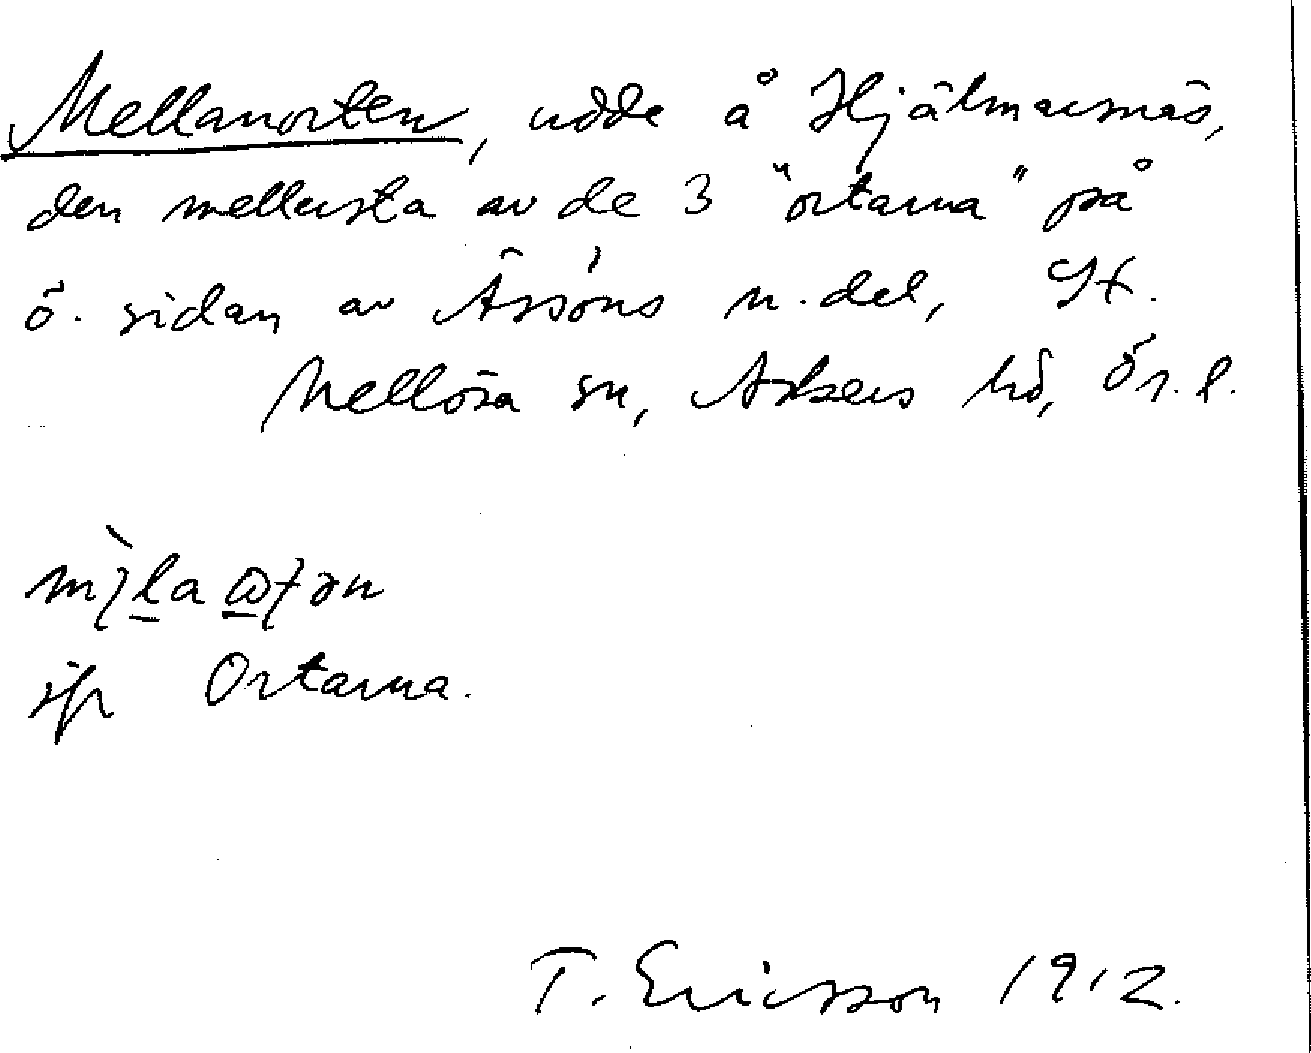 Mellanorten, udde å Hjälmarsnäs,
den mellersta av de 3 "ortarna" på
ö. sidan av Ässöns n. del, St.
Mellösa sn, Askers hd, Ör. l.
Ortarna.
T. Ericsson 1912.